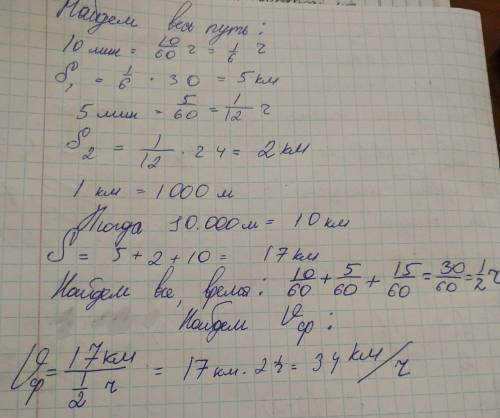 Найдем весь путь:
10 мин = 10/60 ч = 1/6 ч
S₁ = 1/6 · 30 = 5 км
5 мин = 5/60 = 1/12 ч
S₂ = 1/12 · 24 = 2 км
1 км = 1000 м
Тогда 10.000 м = 10 км
S = 5 + 2 + 10 = 17 км
Найдем все, время: 10/60 + 5/60 + 15/60 = 30/60 = 1/2 ч
Найдем Vср:
Vср = 17 км / 1/2 ч = 17 км · 2 ч = 34 км/ч